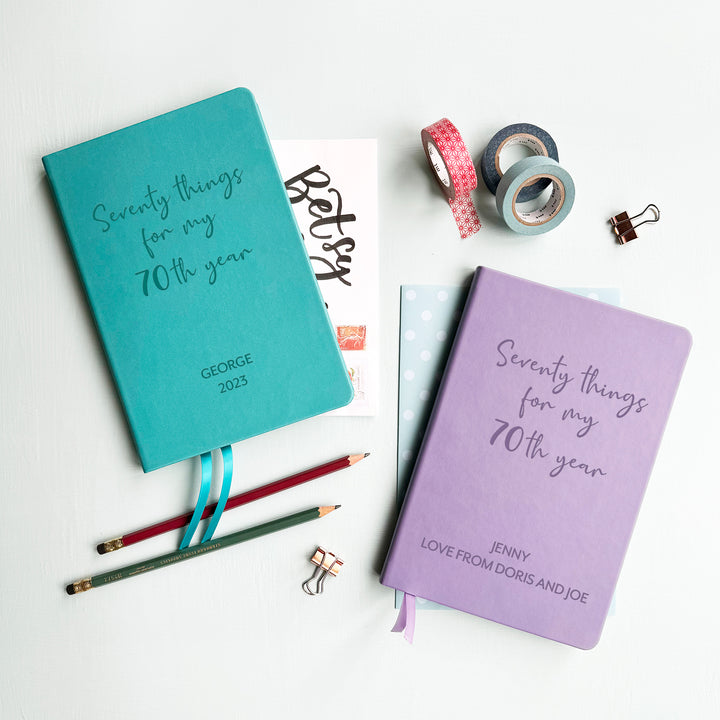 Seventy things
for my
70th year
GEORGE
2023
Betsy
Seventy things
for my
70th year
JENNY
LOVE FROM DORIS AND JOE